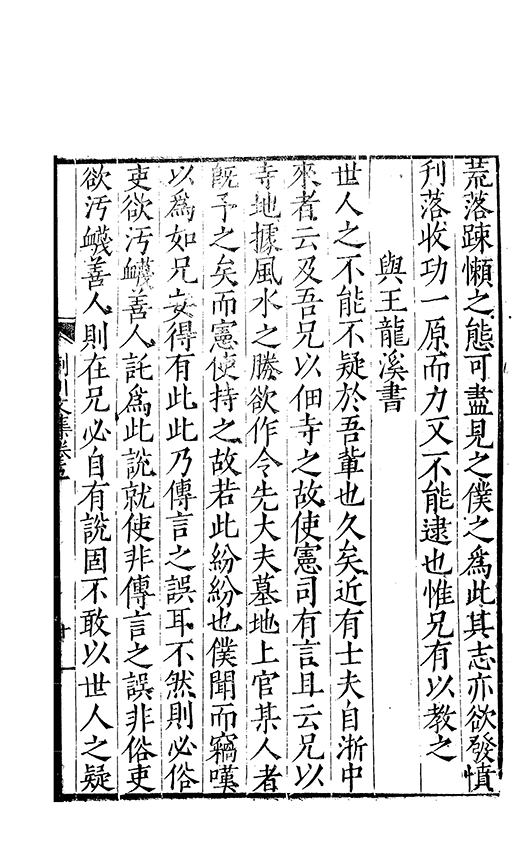 荒落踈懶之態可盡見之僕之爲此其志亦欲發憤
刋落收功一原而力又不能逮也惟兄有以教之
與王龍溪書
世人之不能不疑於吾輩也久矣近有士夫自浙中
來者云及吾兄以佃寺之故使憲司有言且云兄以
寺地據風水之勝欲作令先大夫墓地上官某人者
旣予之矣而憲使持之故若此紛紛也僕聞而竊嘆
以爲如兄安得有此此乃傳言之誤耳不然則必俗
吏欲汚衊善人託爲此說就使非傳言之誤非俗吏
欲汚衊善人則在兄必自有說固不敢以世人之疑
荆川文集卷五